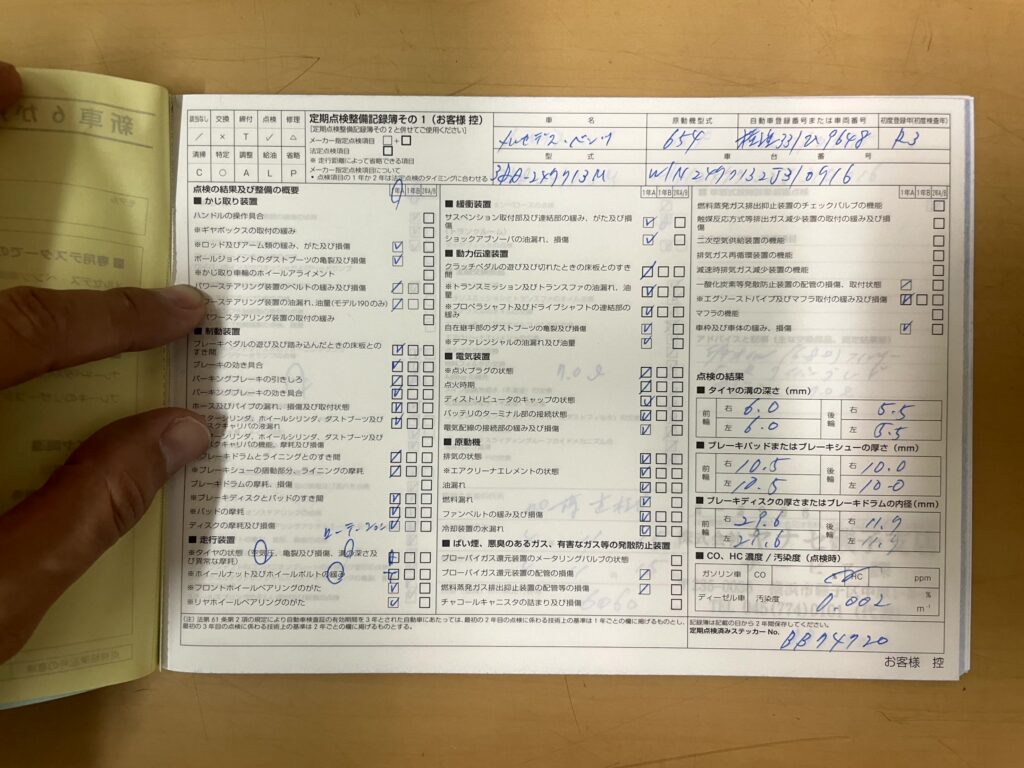 該当なし 交換 締付 点検 修理
／ × T ✓ △
清掃 特定 調整 給油 省略
C ○ A L P
定期点検整備記録簿その1（お客様 控）
[定期点検整備記録簿その2と併せてご使用ください]
メーカー指定点検項目 □+□
法定点検項目 □
※ 走行距離によって省略できる項目
メーカー指定点検項目について
• 点検項目の1年か2年は法定点検のタイミングに合わせる
車 名
メルセデス・ベンツ
原動機型式
654
自動車登録番号または車両番号
9648
初度登録年(初度検査年)
R3
型 式
3DA-247713M
車 台 番 号
W1N2477132J310916
点検の結果及び整備の概要
1年A 1年B 2年A/B
■ かじ取り装置
ハンドルの操作具合
※ギヤボックスの取付の緩み
※ロッド及びアーム類の緩み、がた及び損傷
ボールジョイントのダストブーツの亀裂及び損傷
※かじ取り車輪のホイールアライメント
パワーステアリング装置のベルトの緩み及び損傷
ワーステアリング装置の油漏れ、油量(モデル190のみ)
パワーステアリング装置の取付の緩み
■ 制動装置
ブレーキペダルの遊び及び踏み込んだときの床板とのすき間
ブレーキの効き具合
パーキングブレーキの引きしろ
パーキングブレーキの効き具合
ホース及びパイプの漏れ、損傷及び取付状態
ターシリンダ、ホイールシリンダ、ダストブーツ及び
スクキャリパの液漏れ
ーシリンダ、ホイールシリンダ、ダストブーツ及び
スクキャリパの機能、摩耗及び損傷
ブレーキドラムとライニングとのすき間
※ブレーキシューの摺動部分、ライニングの摩耗
ブレーキドラムの摩耗、損傷
※ブレーキディスクとパッドのすき間
※パッドの摩耗
ディスクの摩耗及び損傷
ローテーション
■ 走行装置
※タイヤの状態（空気圧、亀裂及び損傷、溝の深さ及び異常な摩耗）
※ホイールナット及びホイールボルトの緩み
※フロントホイールベアリングのがた
※リヤホイールベアリングのがた
1年A 1年B 2年A/B
■ 緩衝装置
サスペンション取付部及び連結部の緩み、がた及び損傷
ショックアブソーバの油漏れ、損傷
■ 動力伝達装置
クラッチペダルの遊び及び切れたときの床板とのすき間
※トランスミッション及びトランスファの油漏れ、油量
※プロペラシャフト及びドライブシャフトの連結部の緩み
自在継手部のダストブーツの亀裂及び損傷
※デファレンシャルの油漏れ及び油量
■ 電気装置
※点火プラグの状態
点火時期
ディストリビュータのキャップの状態
バッテリのターミナル部の接続状態
電気配線の接続部の緩み及び損傷
■ 原動機
排気の状態
※エアクリーナエレメントの状態
油漏れ
燃料漏れ
ファンベルトの緩み及び損傷
冷却装置の水漏れ
■ ばい煙、悪臭のあるガス、有害なガス等の発散防止装置
ブローバイガス還元装置のメータリングバルブの状態
ブローバイガス還元装置の配管の損傷
燃料蒸発ガス排出抑止装置の配管等の損傷
チャコールキャニスタの詰まり及び損傷
1年A 1年B 2年A/B
燃料蒸発ガス排出抑止装置のチェックバルブの機能
触媒反応方式等排出ガス減少装置の取付の緩み及び損傷
二次空気供給装置の機能
排気ガス再循環装置の機能
減速時排気ガス減少装置の機能
一酸化炭素等発散防止装置の配管の損傷、取付状態
※エグゾーストパイプ及びマフラ取付の緩み及び損傷
マフラの機能
車枠及び車体の緩み、損傷
点検の結果
■ タイヤの溝の深さ（mm）
前輪 右 6.0 左 6.0 後輪 右 5.5 左 5.5
■ ブレーキパッドまたはブレーキシューの厚さ（mm）
前輪 右 10.5 左 10.5 後輪 右 10.0 左 10.0
■ ブレーキディスクの厚さまたはブレーキドラムの内径(mm)
前輪 右 29.6 左 29.6 後輪 右 11.9 左 11.9
■ CO、HC 濃度 / 汚染度（点検時）
ガソリン車 CO HC ppm
ディーゼル車 汚染度 0.002 % m⁻¹
(注) 法第61条第2項の規定により自動車検査証の有効期間を3年とされた自動車にあたっては、最初の2年目の点検に係わる技術上の基準は1年ごとの欄に掲げるものとし、
最初の3年目の点検に係わる技術上の基準は2年ごとの欄に掲げるものとする。
記録簿は記載の日から2年間保存してください。
定期点検済みステッカー No.
BB74720
お客様 控